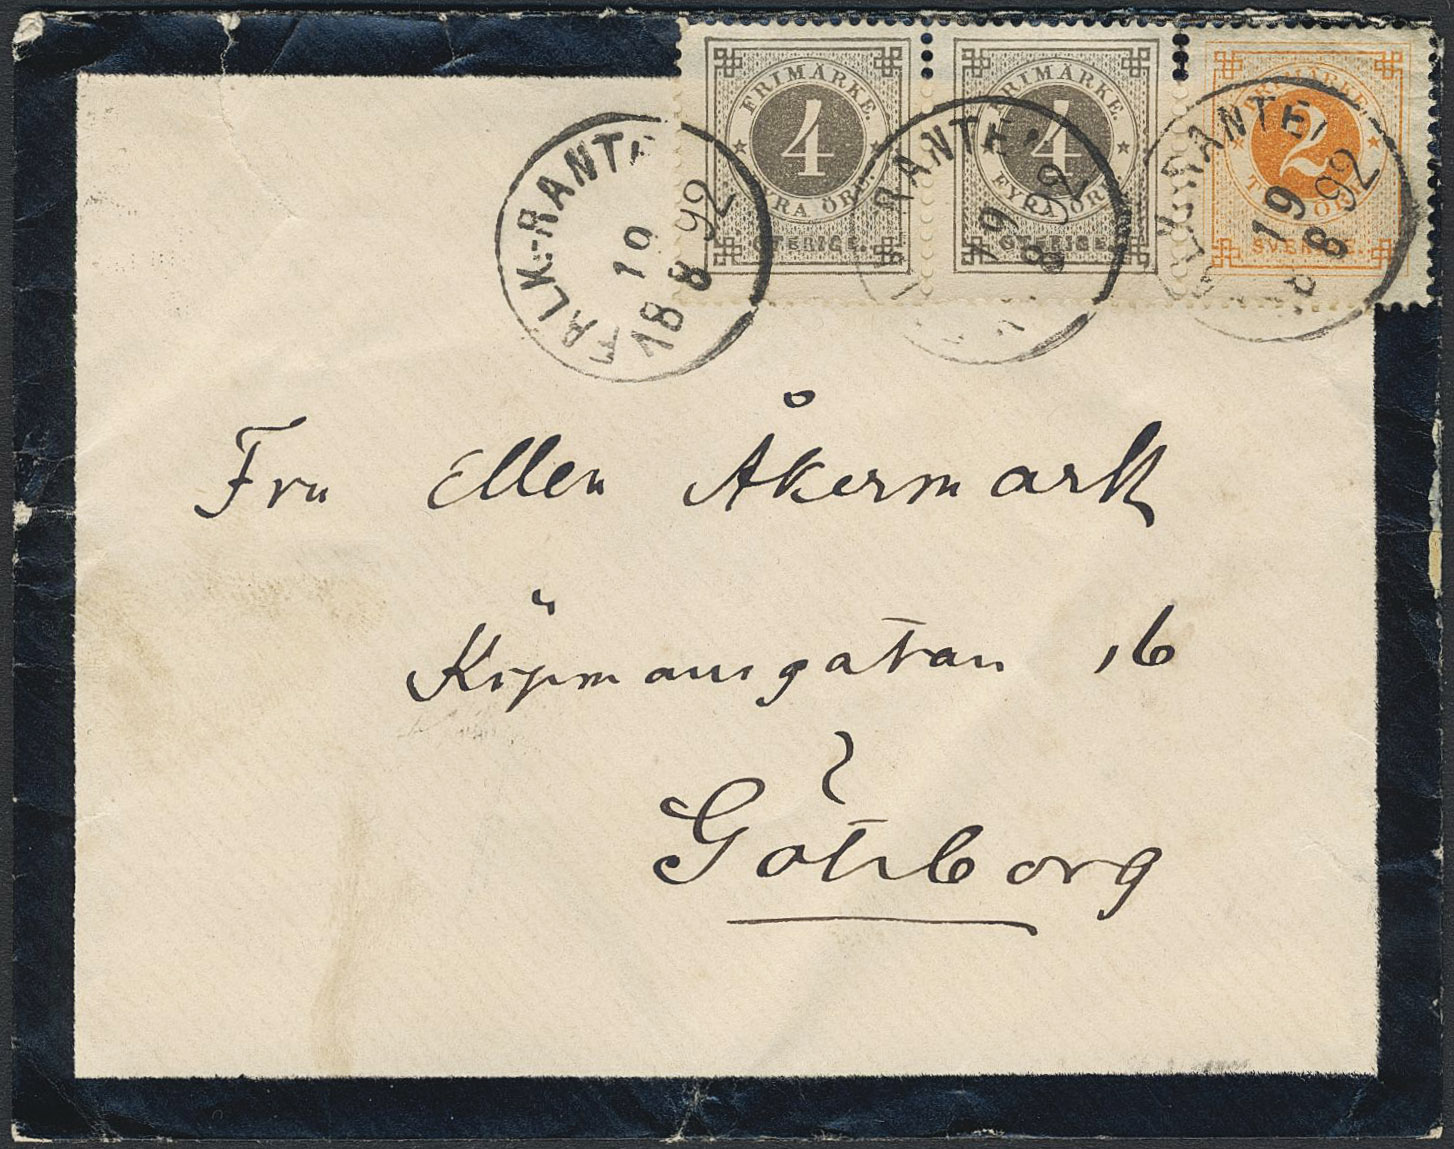 FRIMÄRKE.
4
FYRA ÖRE.
SVERIGE.
FRIMÄRKE.
4
FYRA ÖRE.
SVERIGE.
FRIMÄRKE.
2
TVÅ ÖRE.
SVERIGE.
FALK.-RANTEN
19
8
18 92
RANTEN
19
8
92
FALK.-RANTEN
19
8
18 92
Fru Ellen Åkermark
Köpmansgatan 16
Göteborg